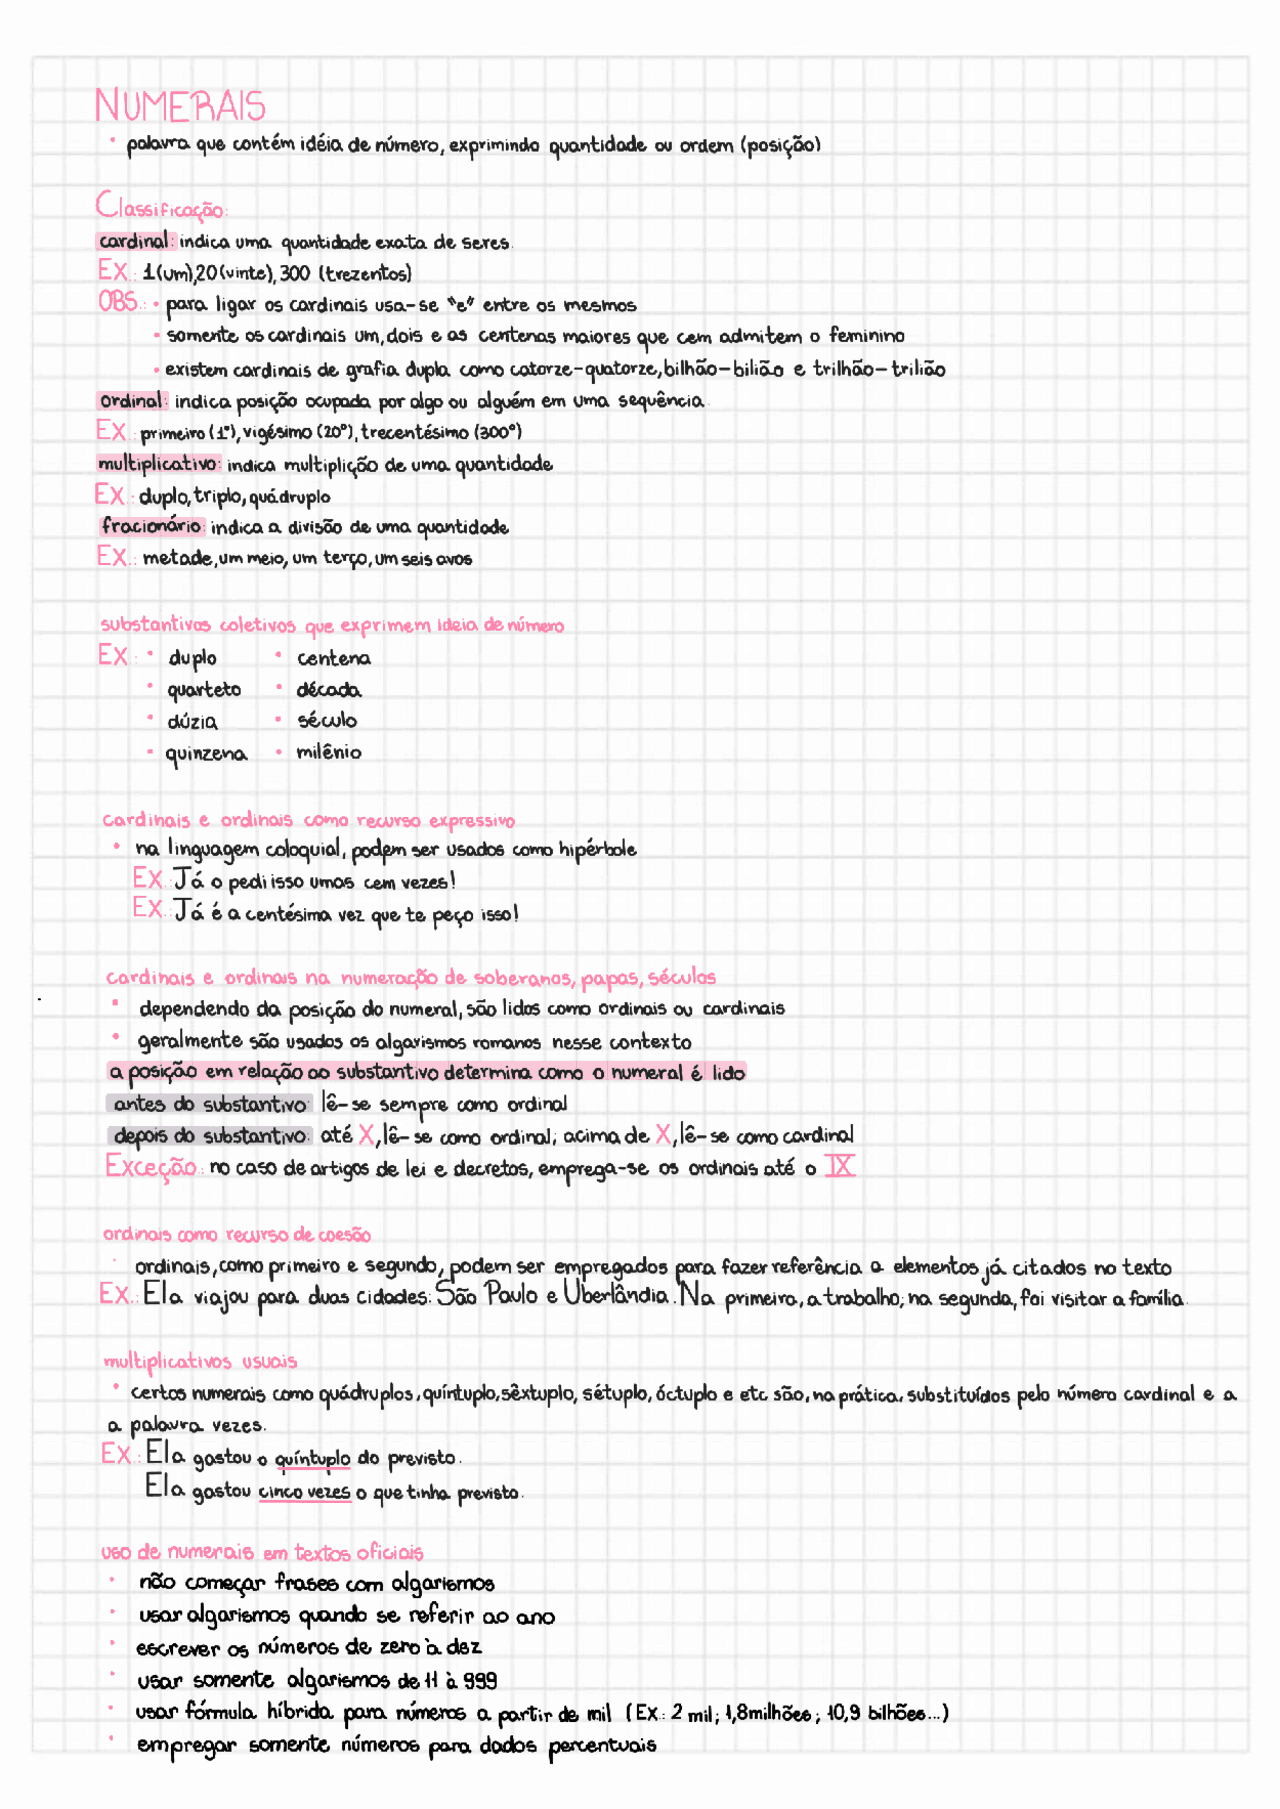 NUMERAIS
• palavra que contém idéia de número, exprimindo quantidade ou ordem (posição)
Classificação:
cardinal: indica uma quantidade exata de seres.
Ex.: 1(um), 20(vinte), 300 (trezentos)
OBS.: • para ligar os cardinais usa-se "e" entre os mesmos
• somente os cardinais um, dois e as centenas maiores que cem admitem o feminino
• existem cardinais de grafia dupla como catorze-quatorze, bilhão-bilião e trilhão-trilião
ordinal: indica posição ocupada por algo ou alguém em uma sequência.
Ex.: primeiro (1°), vigésimo (20°), trecentésimo (300°)
multiplicativo: indica multiplição de uma quantidade
Ex.: duplo, triplo, quádruplo
fracionário: indica a divisão de uma quantidade
Ex.: metade, um meio, um terço, um seis avos
substantivos coletivos que exprimem ideia de número
Ex.: • duplo • centena
• quarteto • década
• dúzia • século
• quinzena • milênio
cardinais e ordinais como recurso expressivo
• na linguagem coloquial, podem ser usados como hipérbole
Ex.: Já o pedi isso umas cem vezes!
Ex.: Já é a centésima vez que te peço isso!
cardinais e ordinais na numeração de soberanos, papas, séculos
• dependendo da posição do numeral, são lidos como ordinais ou cardinais
• geralmente são usados os algarismos romanos nesse contexto
a posição em relação ao substantivo determina como o numeral é lido
antes do substantivo: lê-se sempre como ordinal
depois do substantivo: até X, lê-se como ordinal; acima de X, lê-se como cardinal
Exceção.: no caso de artigos de lei e decretos, emprega-se os ordinais até o IX
ordinais como recurso de coesão
• ordinais, como primeiro e segundo, podem ser empregados para fazer referência a elementos já citados no texto
Ex.: Ela viajou para duas cidades: São Paulo e Uberlândia. Na primeira, a trabalho; na segunda, foi visitar a família.
multiplicativos usuais
• certos numerais como quádruplos, quíntuplo, sêxtuplo, sétuplo, óctuplo e etc são, na prática, substituídos pelo número cardinal e a
a palavra vezes.
Ex.: Ela gastou o quíntuplo do previsto.
Ela gastou cinco vezes o que tinha previsto.
uso de numerais em textos oficiais
• não começar frases com algarismos
• usar algarismos quando se referir ao ano
• escrever os números de zero à dez
• usar somente algarismos de 11 à 999
• usar fórmula híbrida para números a partir de mil (Ex.: 2 mil; 1,8milhões; 10,9 bilhões...)
• empregar somente números para dados percentuais